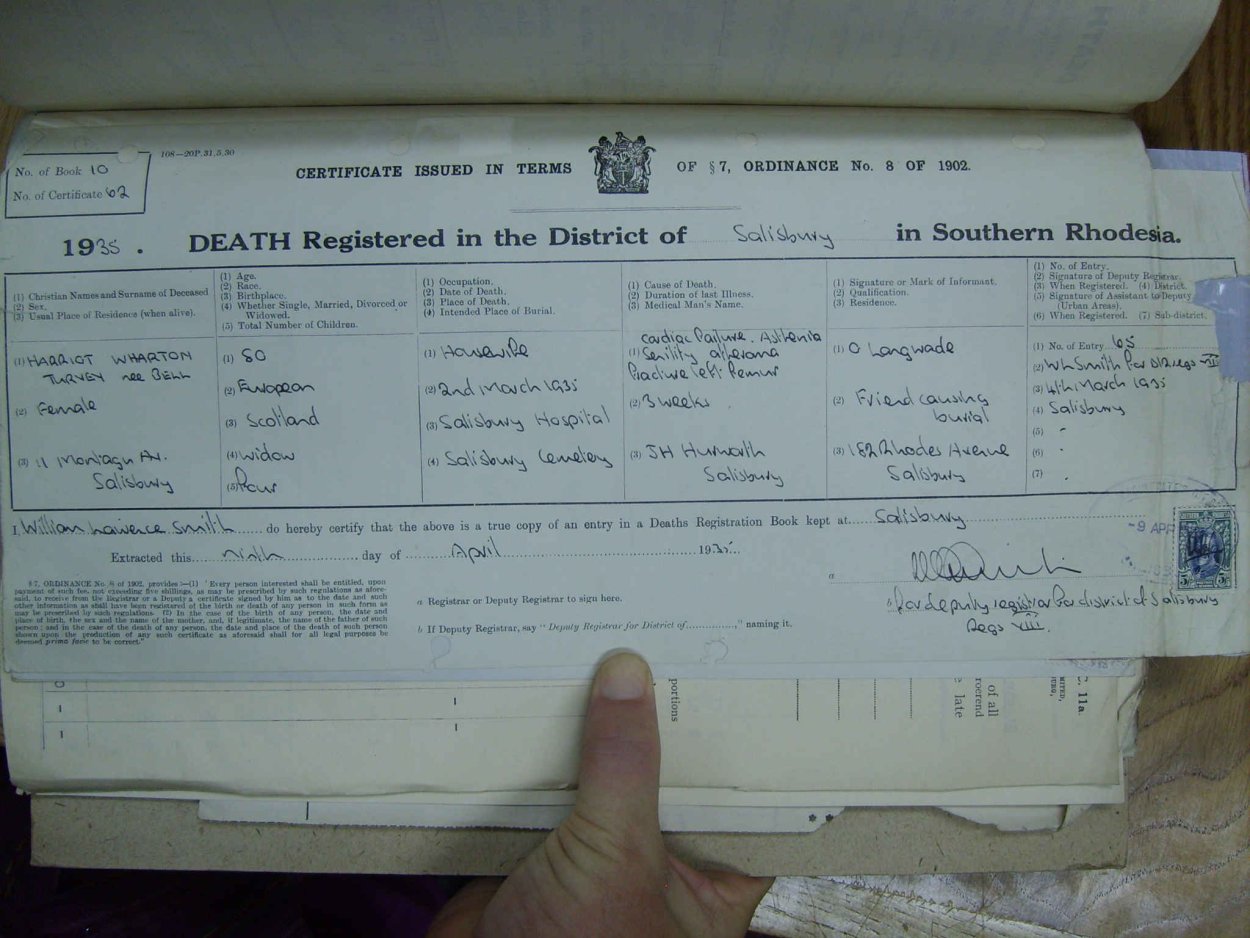 No. of Book 10
No. of Certificate 62
108—20P.31.5.30
CERTIFICATE ISSUED IN TERMS OF § 7, ORDINANCE No. 8 OF 1902.
1935. DEATH Registered in the District of Salisbury in Southern Rhodesia.
(1) Christian Names and Surname of Deceased
(2) Sex.
(3) Usual Place of Residence (when alive).
(1) Age.
(2) Race.
(3) Birthplace.
(4) Whether Single, Married, Divorced or
Widowed.
(5) Total Number of Children.
(1) Occupation.
(2) Date of Death.
(3) Place of Death.
(4) Intended Place of Burial.
(1) Cause of Death.
(2) Duration of last Illness.
(3) Medical Man's Name.
(1) Signature or Mark of Informant.
(2) Qualification.
(3) Residence.
(1) No. of Entry.
(2) Signature of Deputy Registrar.
(3) When Registered. (4) District.
(5) Signature of Assistant to Deputy
(Urban Areas).
(6) When Registered. (7) Sub-district.
(1) HARRIOT WHARTON
TURVEY nee BELL
(2) Female
(3) 11 Montagu Av.
Salisbury
(1) 80
(2) European
(3) Scotland
(4) Widow
(5) Four
(1) Housewife
(2) 2nd March 1935
(3) Salisbury Hospital
(4) Salisbury Cemetery
Cardiac Failure. Asthenia
(1) Senility atheroma
Fracture left femur
(2) 3 weeks
(3) JH Hurworth
Salisbury
(1) O Langwade
(2) Friend causing
burial
(3) 182 Rhodes Avenue
Salisbury
(1) No. of Entry 65
(2) WL Smith for DR regs
(3) 4th March 1935
(4) Salisbury
(5) -
(6) .
(7) .
I, William Lawrence Smith do hereby certify that the above is a true copy of an entry in a Deaths Registration Book kept at Salisbury
Extracted this Ninth day of April 1935.
-9 APR
§ 7, ORDINANCE No. 8 of 1902, provides:—(1) 'Every person interested shall be entitled, upon
payment of such fee, not exceeding five shillings, as may be prescribed by such regulations as afore-
said, to receive from the Registrar or a Deputy a certificate signed by him as to the date and such
other information as shall have been registered of the birth or death of any person in such form as
may be prescribed by such regulations. (2) In the case of the birth of any person, the date and
place of birth, the sex and the name of the mother, and, if legitimate, the name of the father of such
person; and in the case of the death of any person, the date and place of the death of such person
shown upon the production of any such certificate as aforesaid shall for all legal purposes be
deemed prima facie to be correct."
a Registrar or Deputy Registrar to sign here.
b If Deputy Registrar, say "Deputy Registrar for District of............" naming it.
a
b For deputy registrar for district of Salisbury
Regs VIII.
portions
of all
rocerend
e late
C. 11a.